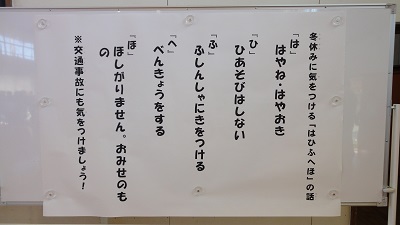 冬休みに気をつける「はひふへほ」の話
『は』
はやね・はやおき
『ひ』
ひあそびはしない
『ふ』
ふしんしゃにきをつける
『へ』
べんきょうをする
『ほ』
ほしがりません。おみせのも
の
※交通事故にも気をつけましょう！